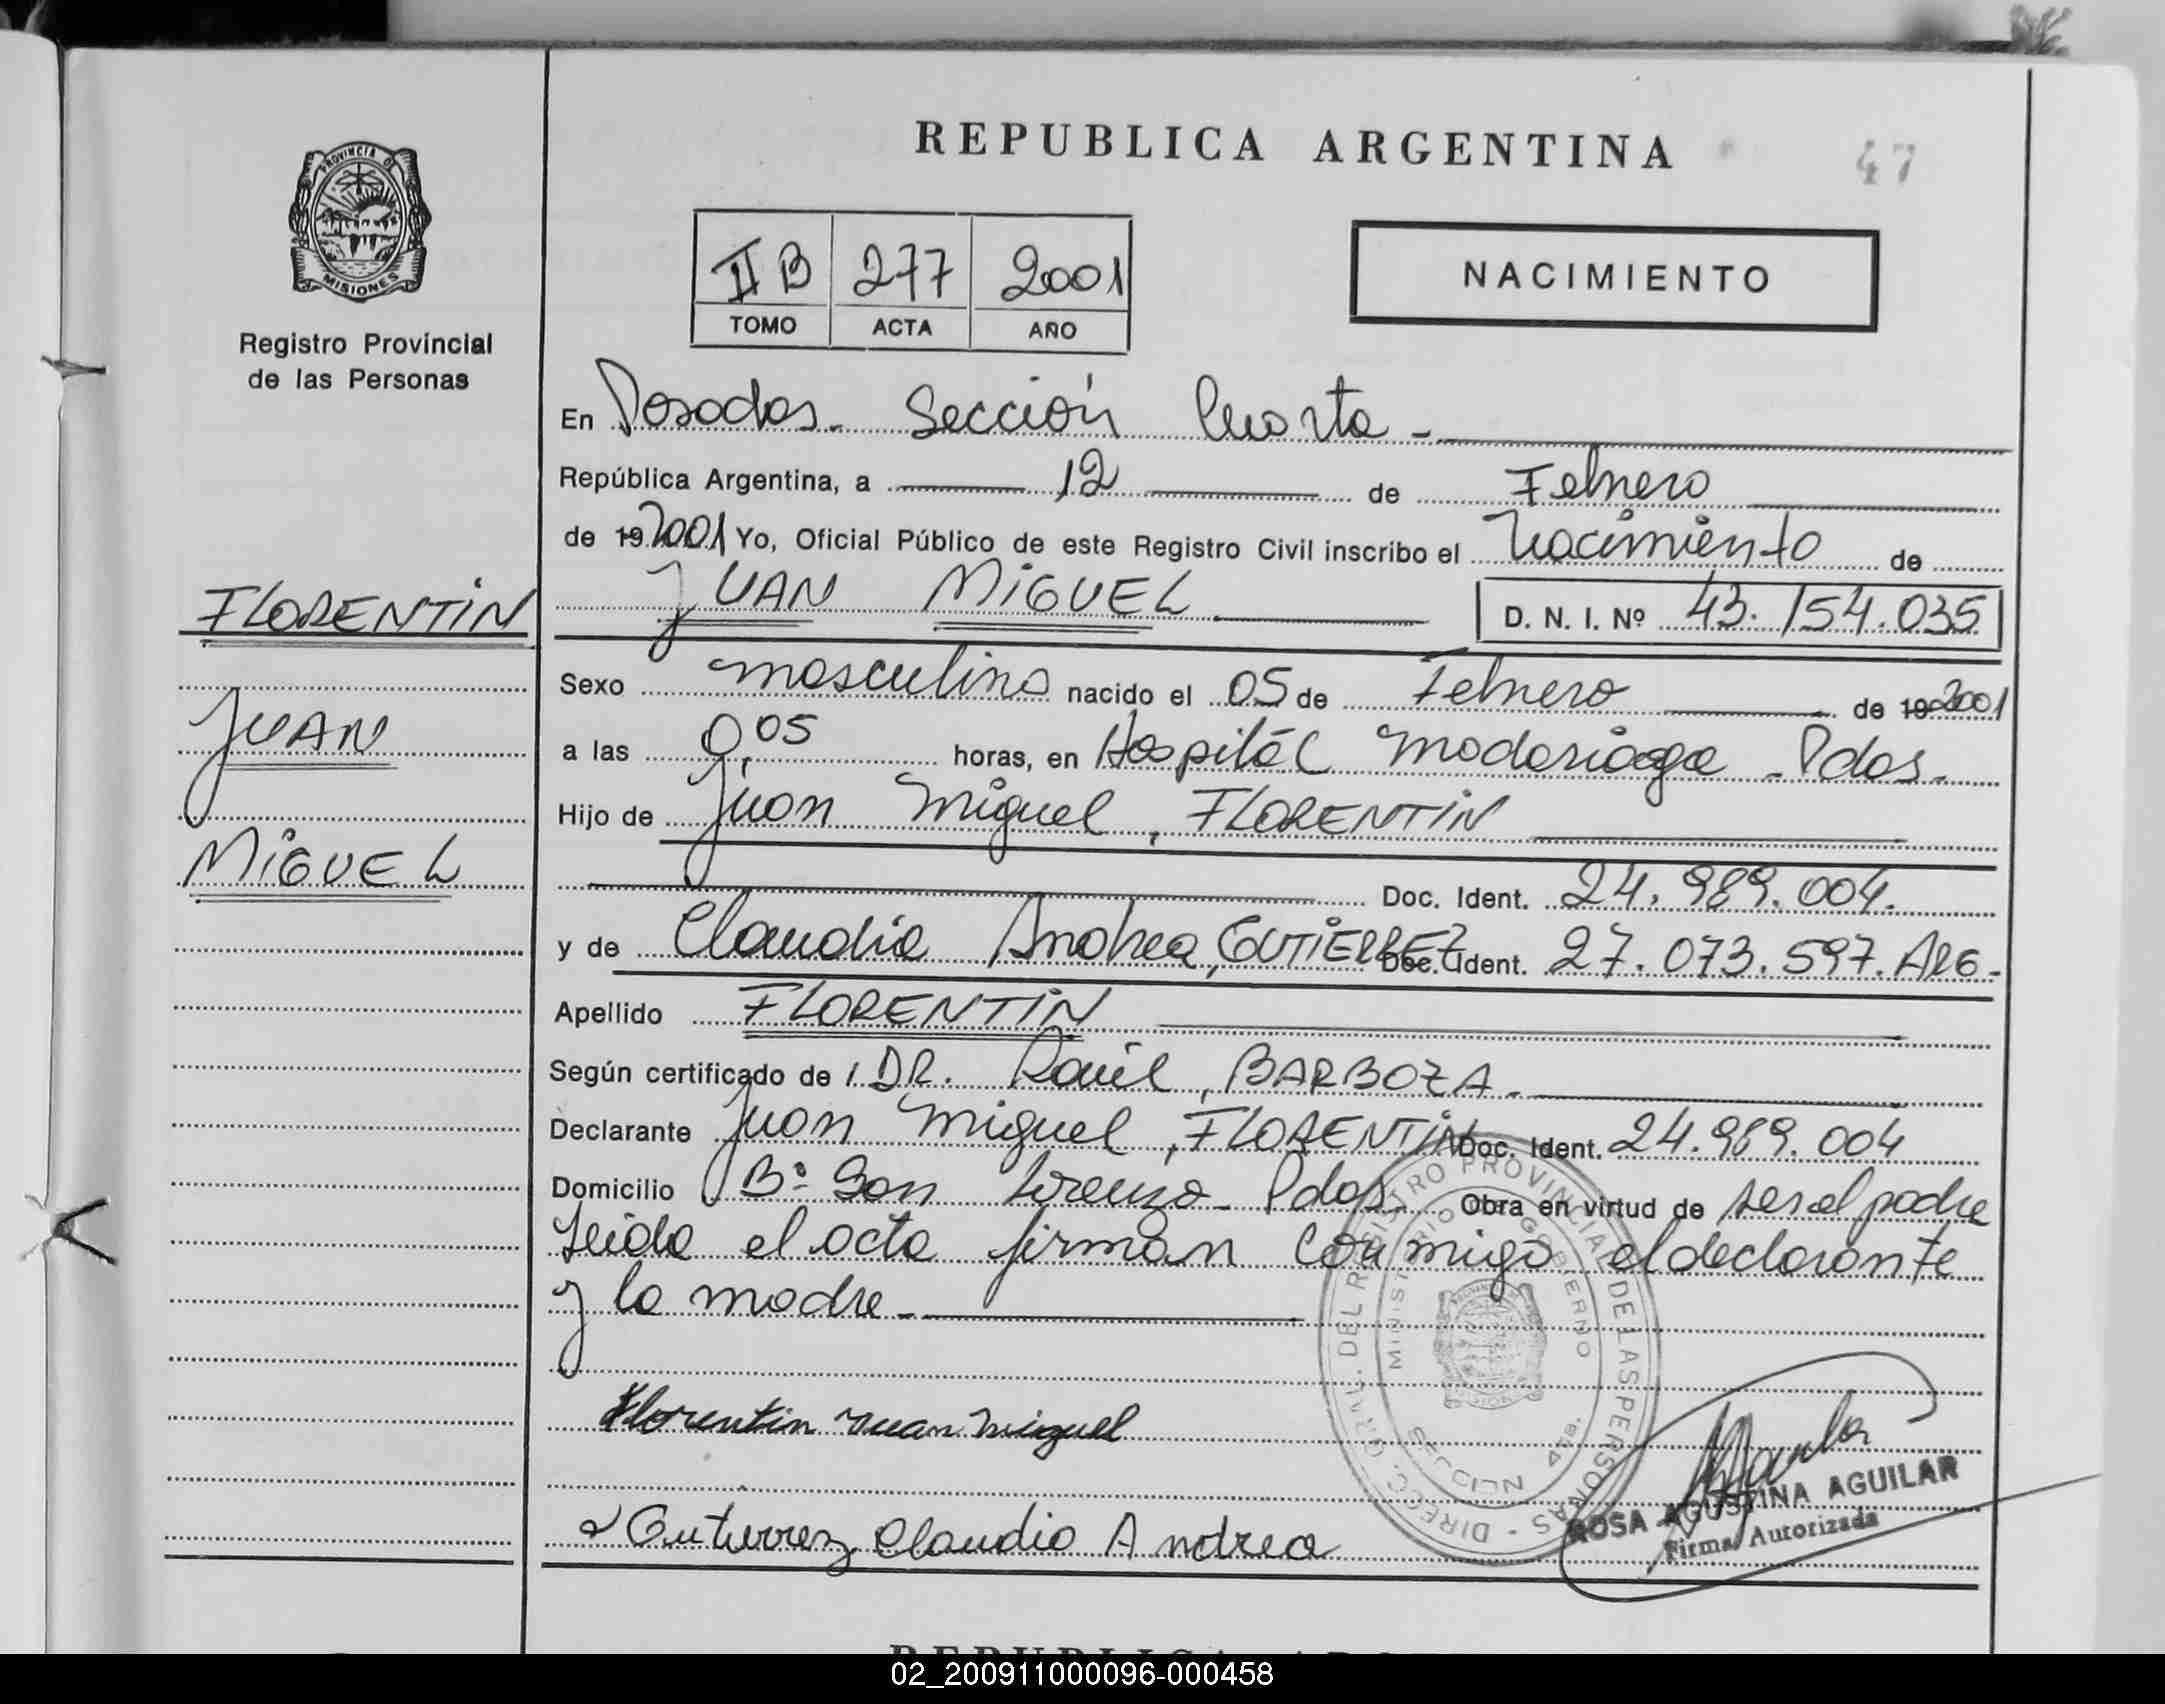 REPUBLICA ARGENTINA
47
PROVINCIA D
MISIONES
Registro Provincial
de las Personas
II B 277 2001
TOMO ACTA AÑO
NACIMIENTO
En Posadas - Sección Cuarta -
República Argentina, a 12 de Febrero
de 19 2001 Yo, Oficial Público de este Registro Civil inscribo el Nacimiento de
JUAN MIGUEL D. N. I. Nº 43.154.035
FLORENTIN
JUAN
MIGUEL
Sexo masculino nacido el 05 de Febrero de 19 2001
a las 0,05 horas, en Hospital Madariaga - Pdas.
Hijo de Juan Miguel, FLORENTIN
Doc. Ident. 24.989.004.
y de Claudia Andrea, GUTIERREZ Doc. Ident. 27.073.597. ARG.
Apellido FLORENTIN
Según certificado de / DR. Raúl, BARBOZA.
Declarante Juan Miguel, FLORENTIN Doc. Ident. 24.989.004
Domicilio Bº San Lorenzo - Pdas. Obra en virtud de ser el padre
Leida el acta firman conmigo el declarante
y la madre -
DIREC. GRAL. DEL REGISTRO PROVINCIAL DE LAS PERSONAS -
MINISTERIO GOBIERNO
4ta.
Florentin Juan Miguel
ROSA AGUSTINA AGUILAR
Firma Autorizada
Gutierrez Claudia Andrea
02_200911000096-000458